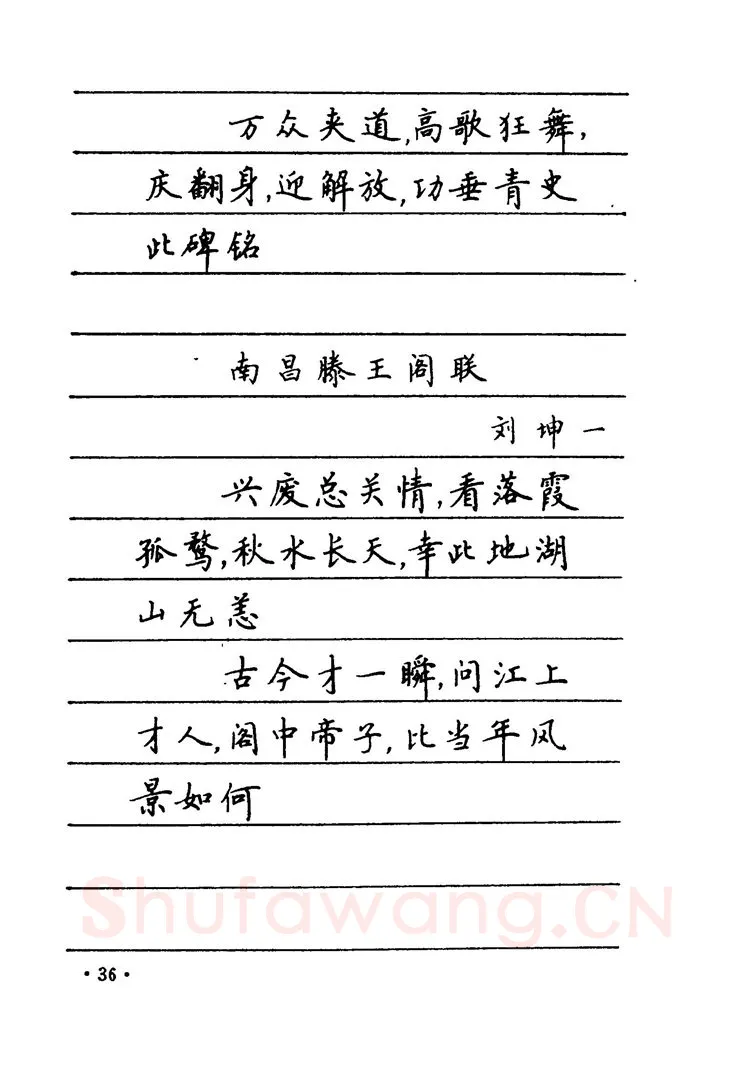 万众夹道,高歌狂舞,
庆翻身,迎解放,功垂青史
此碑铭
南昌滕王阁联
刘坤一
兴废总关情,看落霞
孤鹜,秋水长天,幸此地湖
山无恙
古今才一瞬,问江上
才人,阁中帝子,比当年风
景如何
Shufawang.CN
·36·